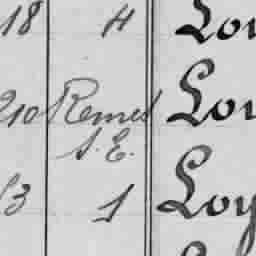 18 H Lou
210 Remes Lou
S. E.
13 1 Loy